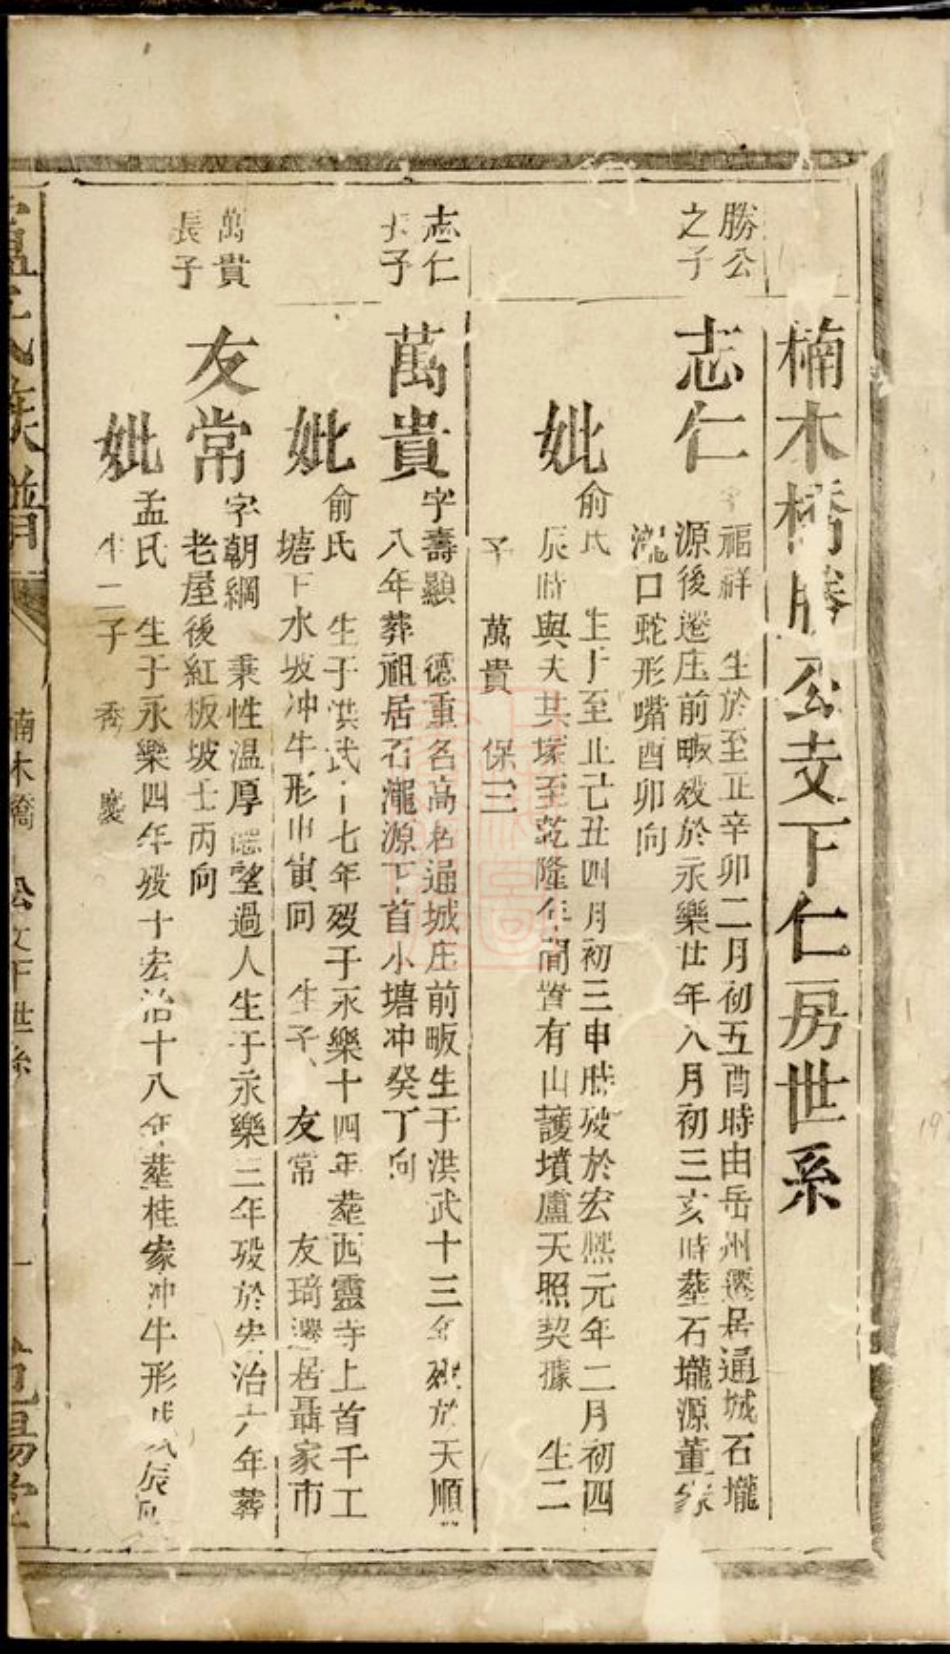 楠木橋勝公支下仁房世系
勝公
之子
志仁
福祥 生於至正辛卯二月初五酉時由岳州遷居通城石壠
源後遷庄前畈歿於永樂廿年八月初三亥時塟石壠源董家
瀧口蛇形嘴酉卯向
妣
俞氏 生于至正己丑四月初三申時歿於宏熈元年二月初四
辰時與夫共塚至乾隆年間置有山護墳盧天照契據 生二
子 萬貴 保三
志仁
長子
萬貴
字壽顯 德重名高居通城庄前畈生于洪武十三年歿於天順
八年葬祖居石瀧源下首小塘冲癸丁向
妣
俞氏 生于洪武十七年歿于永樂十四年塟西靈寺上首千工
塘下水坡冲牛形山寅向 生子 友常 友琦遷居聶家市
萬貴
長子
友常
字朝綱 秉性温厚德望過人生于永樂三年歿於宏治六年葬
老屋後紅板坡壬丙向
妣
孟氏 生于永樂四年歿十宏治十八年塟桂家冲牛形戌辰向
生二子 秀 慶
氏族譜
楠木橋 公支下世系
一